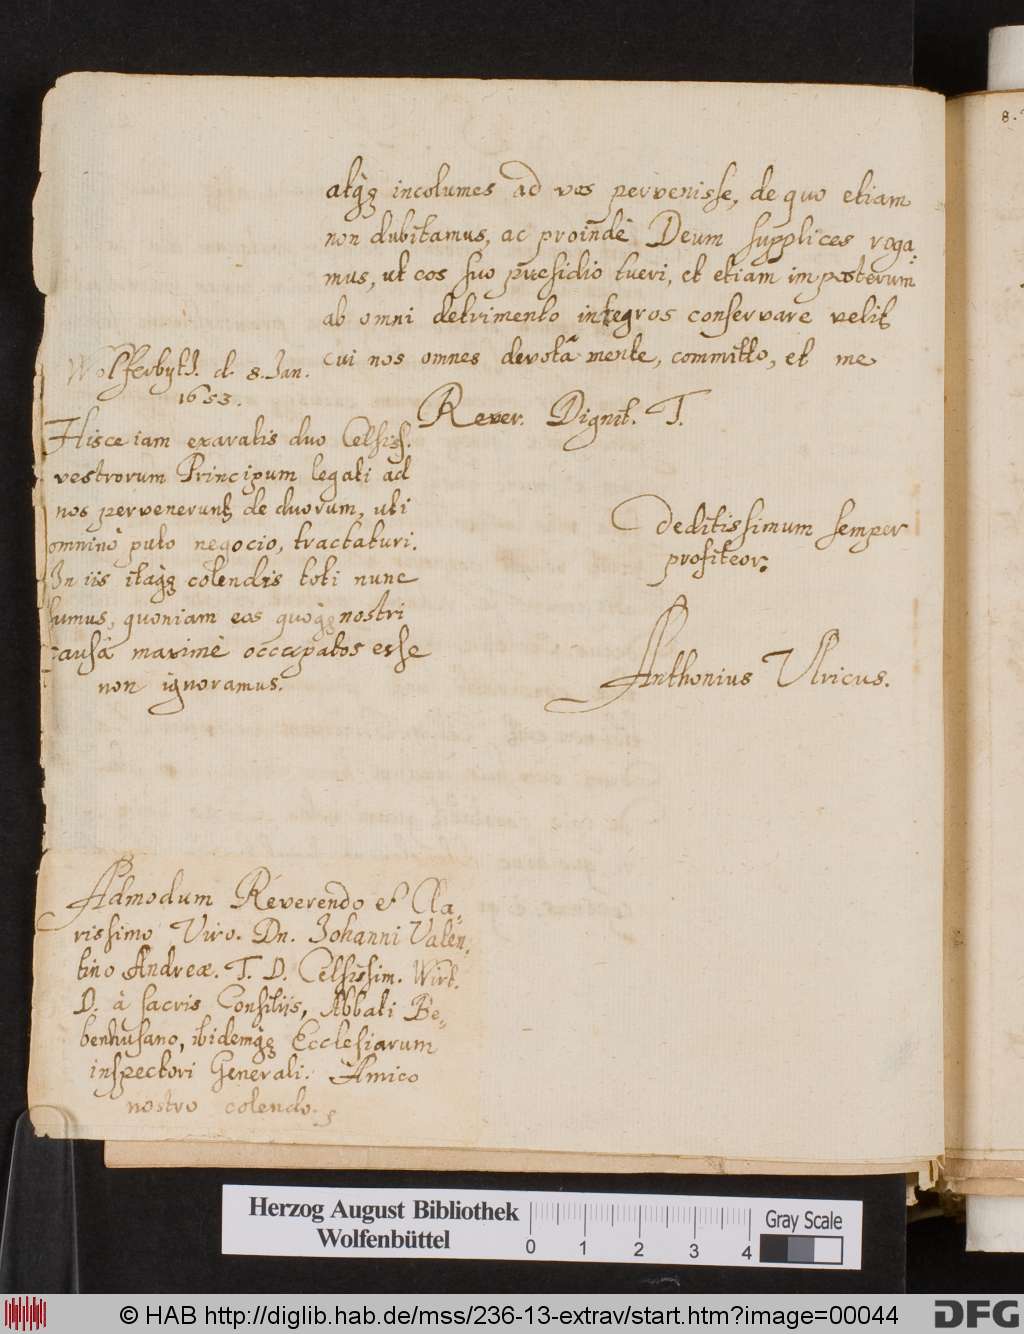 atq̀ꝫ incolumes ad vos pervenisse, de quo etiam
non dubitamus, ac proindè Deum supplices roga-
mus, ut eos suo præsidio tueri, et etiam imposterum
ab omni detrimento integros conservare velit
cui nos omnes devotâ mente, committo, et me
Rever. Dignit. T.
deditissimum semper
profiteor.
Anthonius Ulricus.
Wolferbyti. d. 8. Jan.
1653.
Hisce iam exaratis duo Celsiss.
vestrorum Principum legati ad
nos pervenerunt de duorum, uti
omninò puto negocio, tractaturi.
In iis itaq̀ꝫ colendis toti nunc
sumus, quoniam eos quoq̀ꝫ nostri
causâ maximè occupatos esse
non ignoramus.
Admodum Reverendo et Cla-
rissimo Viro. Dn. Johanni Valen-
tino Andreæ. T. D. Celsissim. Wirt.
D. à sacris Consiliis, Abbati Be-
benhusano, ibidemq̀ꝫ Ecclesiarum
inspectori Generali. Amico
nostro colendo.
8.
Herzog August Bibliothek
Wolfenbüttel
0 1 2 3 4
Gray Scale
© HAB http://diglib.hab.de/mss/236-13-extrav/start.htm?image=00044
DFG